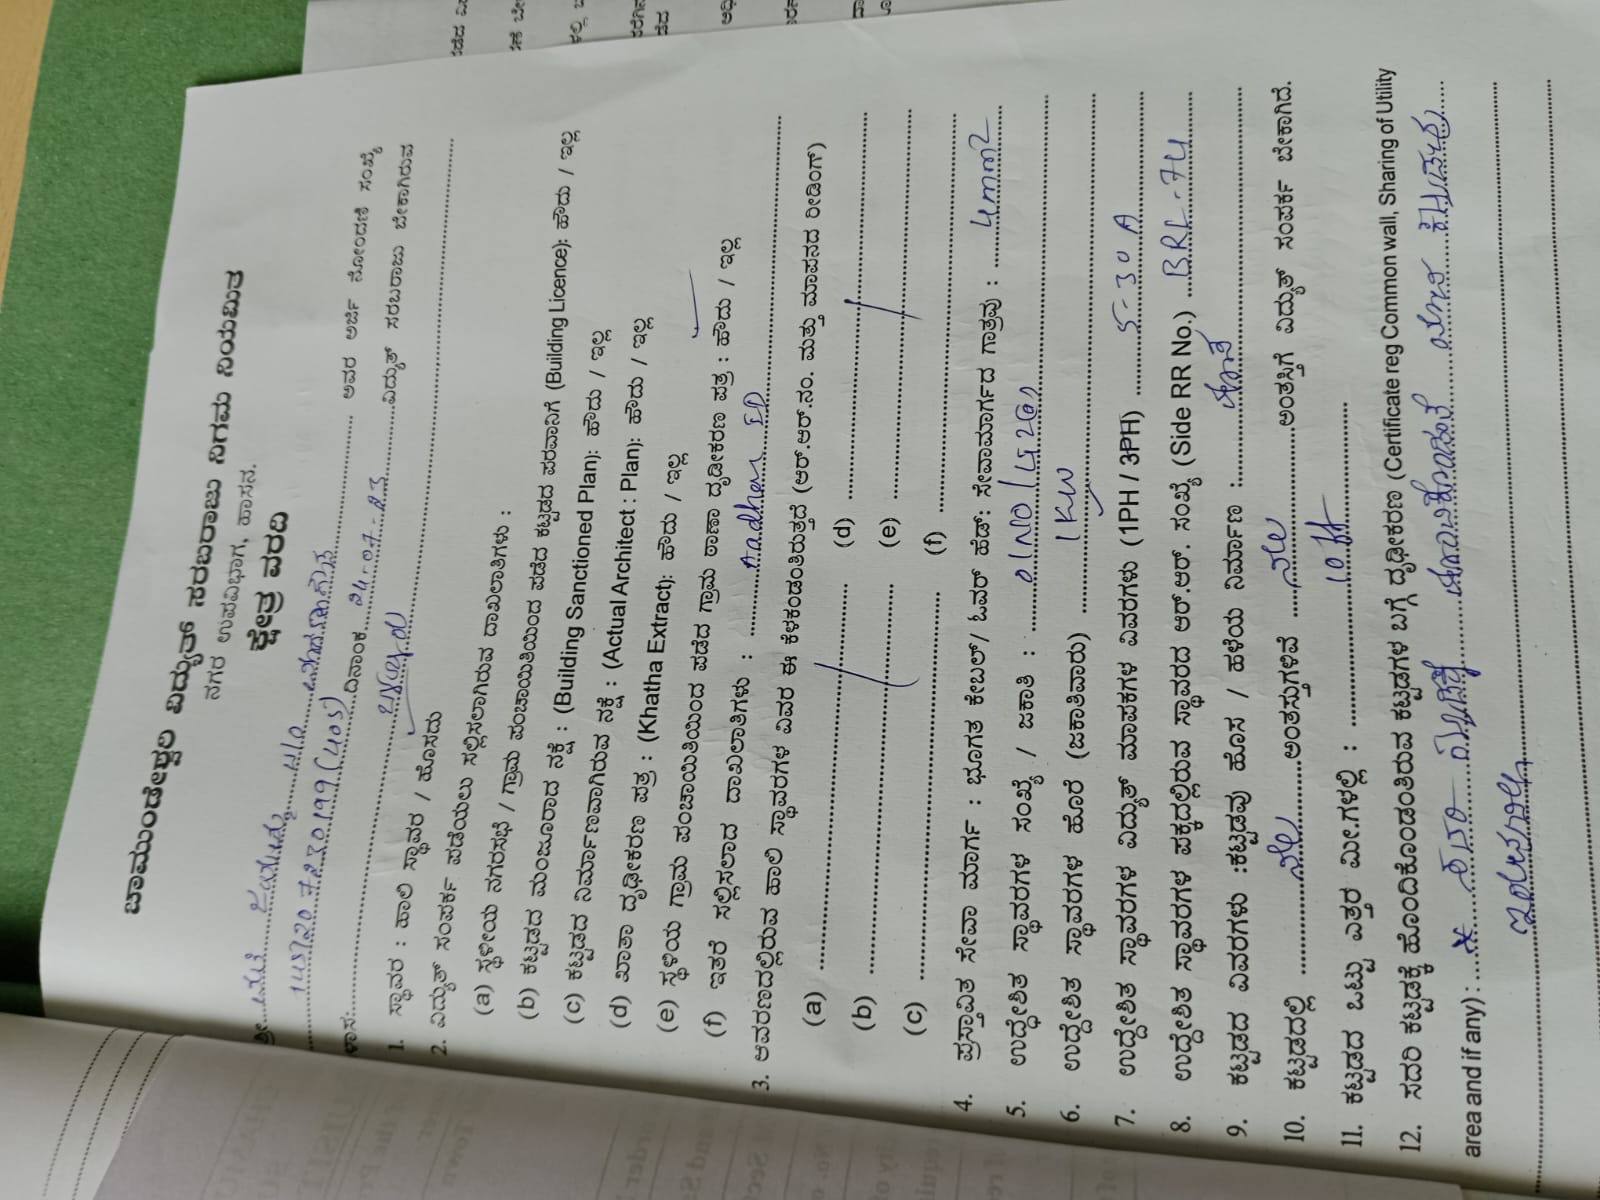 ಚಾಮುಂಡೇಶ್ವರಿ ವಿದ್ಯುತ್ ಸರಬರಾಜು ನಿಗಮ ನಿಯಮಿತ
ನಗರ ಉಪವಿಭಾಗ, ಹಾಸನ.
ಕ್ಷೇತ್ರ ವರದಿ
ಶ್ರೀ ಅವರ ಅರ್ಜಿ ನೋಂದಣಿ ಸಂಖ್ಯೆ
ದಿನಾಂಕ 24-07-23 ವಿದ್ಯುತ್ ಸರಬರಾಜು ಬೇಕಾಗಿರುವ
1. ಸ್ಥಾವರ : ಹಾಲಿ ಸ್ಥಾವರ / ಹೊಸದು
2. ವಿದ್ಯುತ್ ಸಂಪರ್ಕ ಪಡೆಯಲು ಸಲ್ಲಿಸಲಾಗಿರುವ ದಾಖಲಾತಿಗಳು :
(a) ಸ್ಥಳೀಯ ನಗರಸಭೆ / ಗ್ರಾಮ ಪಂಚಾಯಿತಿಯಿಂದ ಪಡೆದ ಕಟ್ಟಡದ ಪರವಾನಿಗೆ (Building Licence): ಹೌದು / ಇಲ್ಲ
(b) ಕಟ್ಟಡದ ಮಂಜೂರಾದ ನಕ್ಷೆ : (Building Sanctioned Plan): ಹೌದು / ಇಲ್ಲ
(c) ಕಟ್ಟಡದ ನಿರ್ಮಾಣವಾಗಿರುವ ನಕ್ಷೆ : (Actual Architect : Plan): ಹೌದು / ಇಲ್ಲ
(d) ಖಾತಾ ದೃಢೀಕರಣ ಪತ್ರ : (Khatha Extract): ಹೌದು / ಇಲ್ಲ
(e) ಸ್ಥಳಿಯ ಗ್ರಾಮ ಪಂಚಾಯಿತಿಯಿಂದ ಪಡೆದ ಗ್ರಾಮ ಠಾಣಾ ದೃಢೀಕರಣ ಪತ್ರ : ಹೌದು / ಇಲ್ಲ
(f) ಇತರೆ ಸಲ್ಲಿಸಲಾದ ದಾಖಲಾತಿಗಳು : Aadhar ID
3. ಆವರಣದಲ್ಲಿರುವ ಹಾಲಿ ಸ್ಥಾವರಗಳ ವಿವರ ಈ ಕೆಳಕಂಡಂತಿರುತ್ತದೆ (ಆರ್.ಆರ್.ನಂ. ಮತ್ತು ಮಾಪನದ ರೀಡಿಂಗ್)
(a) (d)
(b) (e)
(c) (f)
4. ಪ್ರಸ್ತಾವಿತ ಸೇವಾ ಮಾರ್ಗ : ಭೂಗತ ಕೇಬಲ್ / ಓವರ್ ಹೆಡ್: ಸೇವಾಮಾರ್ಗದ ಗಾತ್ರವು : 4mm2
5. ಉದ್ದೇಶಿತ ಸ್ಥಾವರಗಳ ಸಂಖ್ಯೆ / ಜಕಾತಿ :
6. ಉದ್ದೇಶಿತ ಸ್ಥಾವರಗಳ ಹೊರೆ (ಜಕಾತಿವಾರು) 1KW
7. ಉದ್ದೇಶಿತ ಸ್ಥಾವರಗಳ ವಿದ್ಯುತ್ ಮಾಪಕಗಳ ವಿವರಗಳು (1PH / 3PH) 5-30 A
8. ಉದ್ದೇಶಿತ ಸ್ಥಾವರಗಳ ಪಕ್ಕದಲ್ಲಿರುವ ಸ್ಥಾವರದ ಆರ್.ಆರ್. ಸಂಖ್ಯೆ (Side RR No.) BRL-74
9. ಕಟ್ಟಡದ ವಿವರಗಳು :ಕಟ್ಟಡವು ಹೊಸ / ಹಳೆಯ ನಿರ್ಮಾಣ :
10. ಕಟ್ಟಡದಲ್ಲಿ ನೆಲ ಅಂತಸ್ತುಗಳಿವೆ ನೆಲ ಅಂತಸ್ತಿಗೆ ವಿದ್ಯುತ್ ಸಂಪರ್ಕ ಬೇಕಾಗಿದೆ.
11. ಕಟ್ಟಡದ ಒಟ್ಟು ಎತ್ತರ ಮೀ.ಗಳಲ್ಲಿ : 10 ft
12. ಸದರಿ ಕಟ್ಟಡಕ್ಕೆ ಹೊಂದಿಕೊಂಡಂತಿರುವ ಕಟ್ಟಡಗಳ ಬಗ್ಗೆ ದೃಢೀಕರಣ (Certificate reg Common wall, Sharing of Utility
area and if any) :